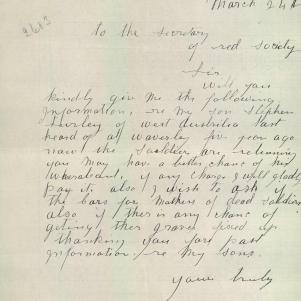 March 24th
2683
to the secretary
of red society
Sir
will you
kindly give me the following
Information, re my son Stephen
of west Australia last
heard of at waverley for year ago
now the soldiers are returning
you may have a better chance of his
if any charge I will gladly
pay it, also I wish to ask if
the bars for mothers of dead soldiers
also if there is any chance of
geting their graves fixed up
thanking you for past
Information, re my sons.
yours truly